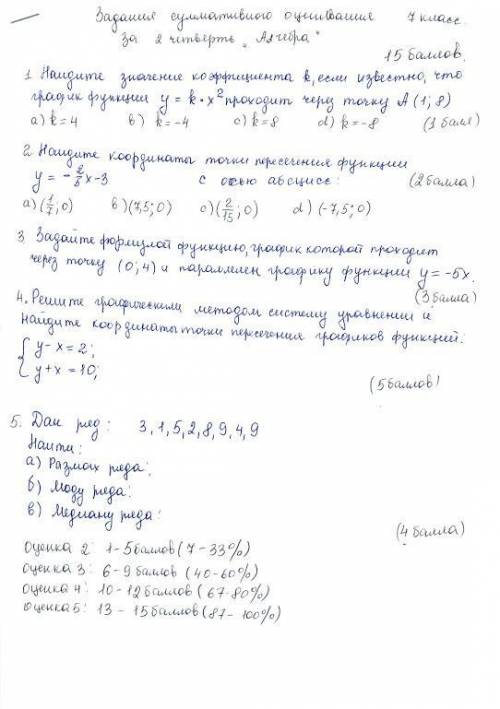 Задания суммативного оценивания 7 класс.
за 2 четверть „Алгебра"
15 баллов.
1 Найдите значение коэффициента k, если известно, что
график функции y = k · x² проходит через точку A (1; 8)
a) k = 4 b) k = -4 c) k = 8 d) k = -8 (1 балл)
2 Найдите координаты точки пересечения функции
y = -2/5x-3 с осью абсцисс: (2 балла)
a) (1/7; 0) b) (7,5; 0) c) (2/15; 0) d) (-7,5; 0)
3 Задайте формулой функцию, график которой проходит
через точку (0; 4) и параллелен графику функции y = -5x.
(3 балла)
4. Решите графическим методом систему уравнений и
найдите координаты точки пересечения графиков функций:
{ y - x = 2;
y + x = 10;
(5 баллов)
5. Дан ряд: 3, 1, 5, 2, 8, 9, 4, 9
Найти:
а) Размах ряда:
б) Моду ряда:
в) Медиану ряда:
(4 балла)
оценка 2: 1-5 баллов (7-33%)
оценка 3: 6-9 баллов (40-60%)
оценка 4: 10-12 баллов (67-80%)
оценка 5: 13-15 баллов (87-100%)